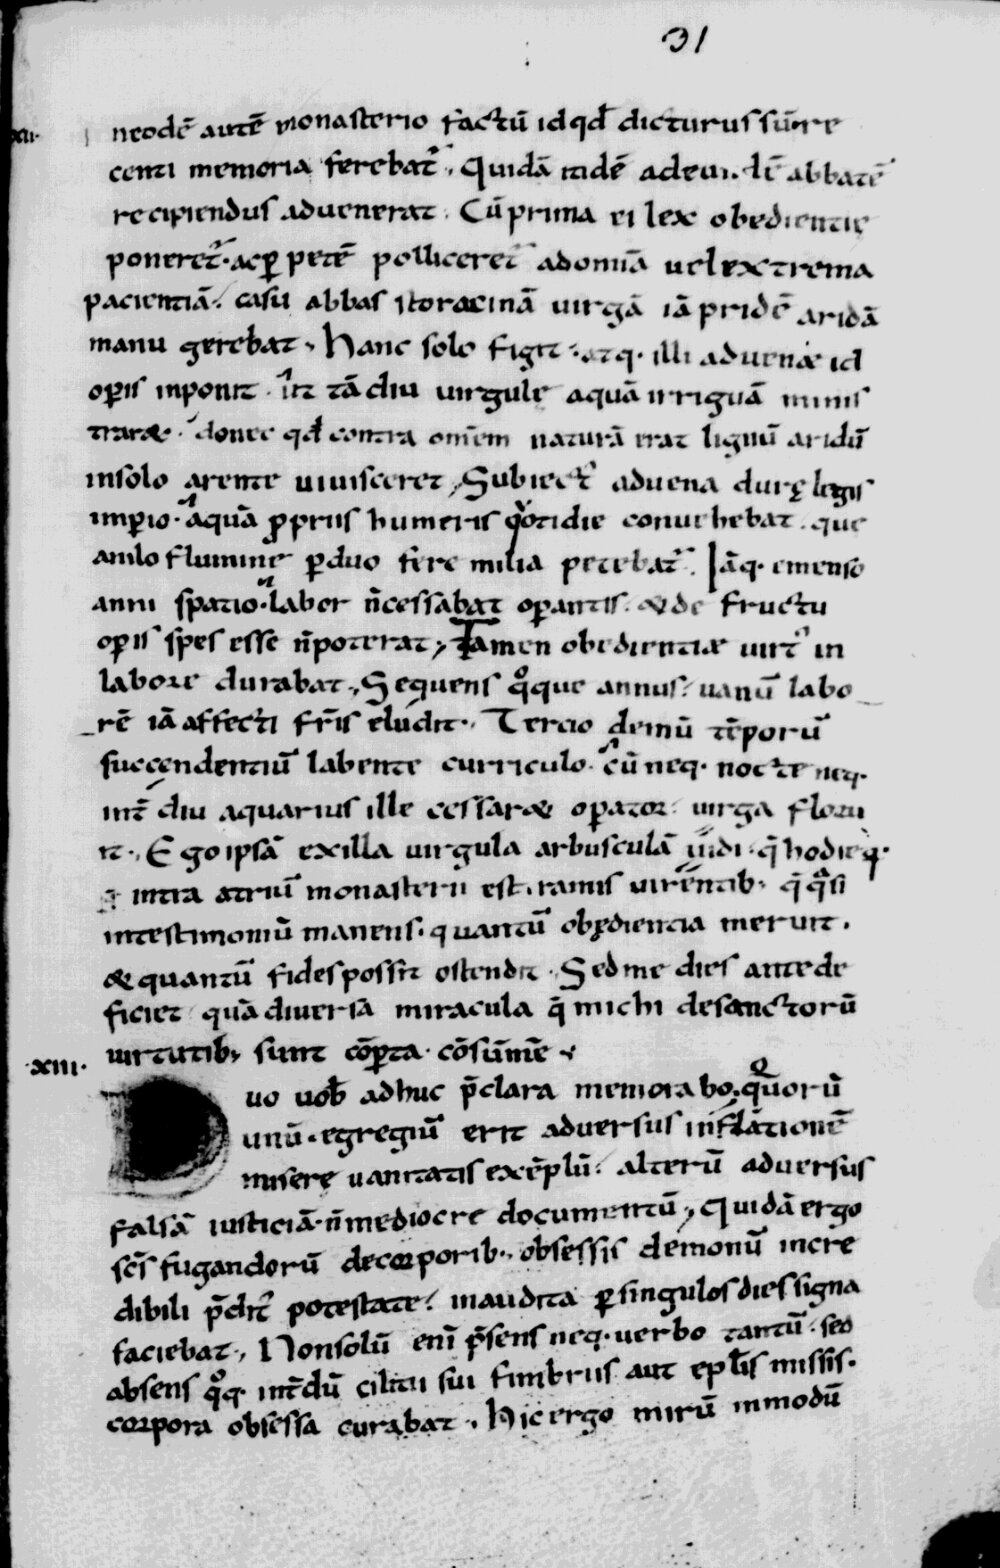 31
XII· neodē autē monasterio factū id qđ dicturus sū· re
centi memoria ferebat᷒. Quidā itidē ad eundē abbatē
recipiendus advenerat. Cū prima ei lex obedientię
poneret᷒· ac ꝑpetē polliceret᷒ ad omīa vel extrema
pacientiā. casu abbas storacinā virgā iā pridē aridā
manu gerebat, hanc solo figit. atq· illi advenæ id
oꝑis inponit· ut tā diu virgule aquā irriguā minis
trar&· donec qđ contra om̄em naturā erat lignū aridū
in solo arente vivisceret, Subiect᷒ advena durę legis
imꝑio· aquā ꝓpriis humeris q̊tidie convehebat. que
a nilo flumine ꝑ duo fere milia petebat᷒. Iāq· emenso
anni spatio· labor n̄ cessabat oꝑantis. & de fructu
oꝑis spes esse n̄ poterat, Tamen obedientiæ virt᷒ in
labore durabat, Sequens q̊que annus. vanū labo
rē iā affecti fr̄is eludit., Tercio demū tēporū
succendentiū labente curriculo· cū neq· nocte neq·
int̄ diu aquarius ille cessar& oꝑator. virga florui
it., Ego ipsā ex illa virgula arbusculā vidi· q̄ hodieq·
intra atriū monasterii est. ramis virentib· q̄ q̊si
in testimoniū manens· quantū obędientia meruit.
& quantū fides possit ostendit. Sed me dies ante de
ficiet quā diversa miracula q̄ michi de sanctorū
virtutib; sunt cōꝑta· cōsūmē
·XIII· Duo vob̄ adhuc p̄clara memorabo· quorū
unū· egregiū erit adversus inflationē
miserę vanitatis exēplū. alterū adversus
falsā iusticiā· n̄ mediocre documentū, Quidā ergo
sc̄s fugandorū de corporib·, obsessis demonū incre
dibili p̄dit᷒ potestate. inaudita ꝑ singulos dies signa
faciebat, Non solū enī p̄sens neq· verbo tantū· sed
absens q̊q· int̄dū cilitii sui fimbriis aut epl̄is missis·
corpora obsessa curabat., Hic ergo mirū in modū